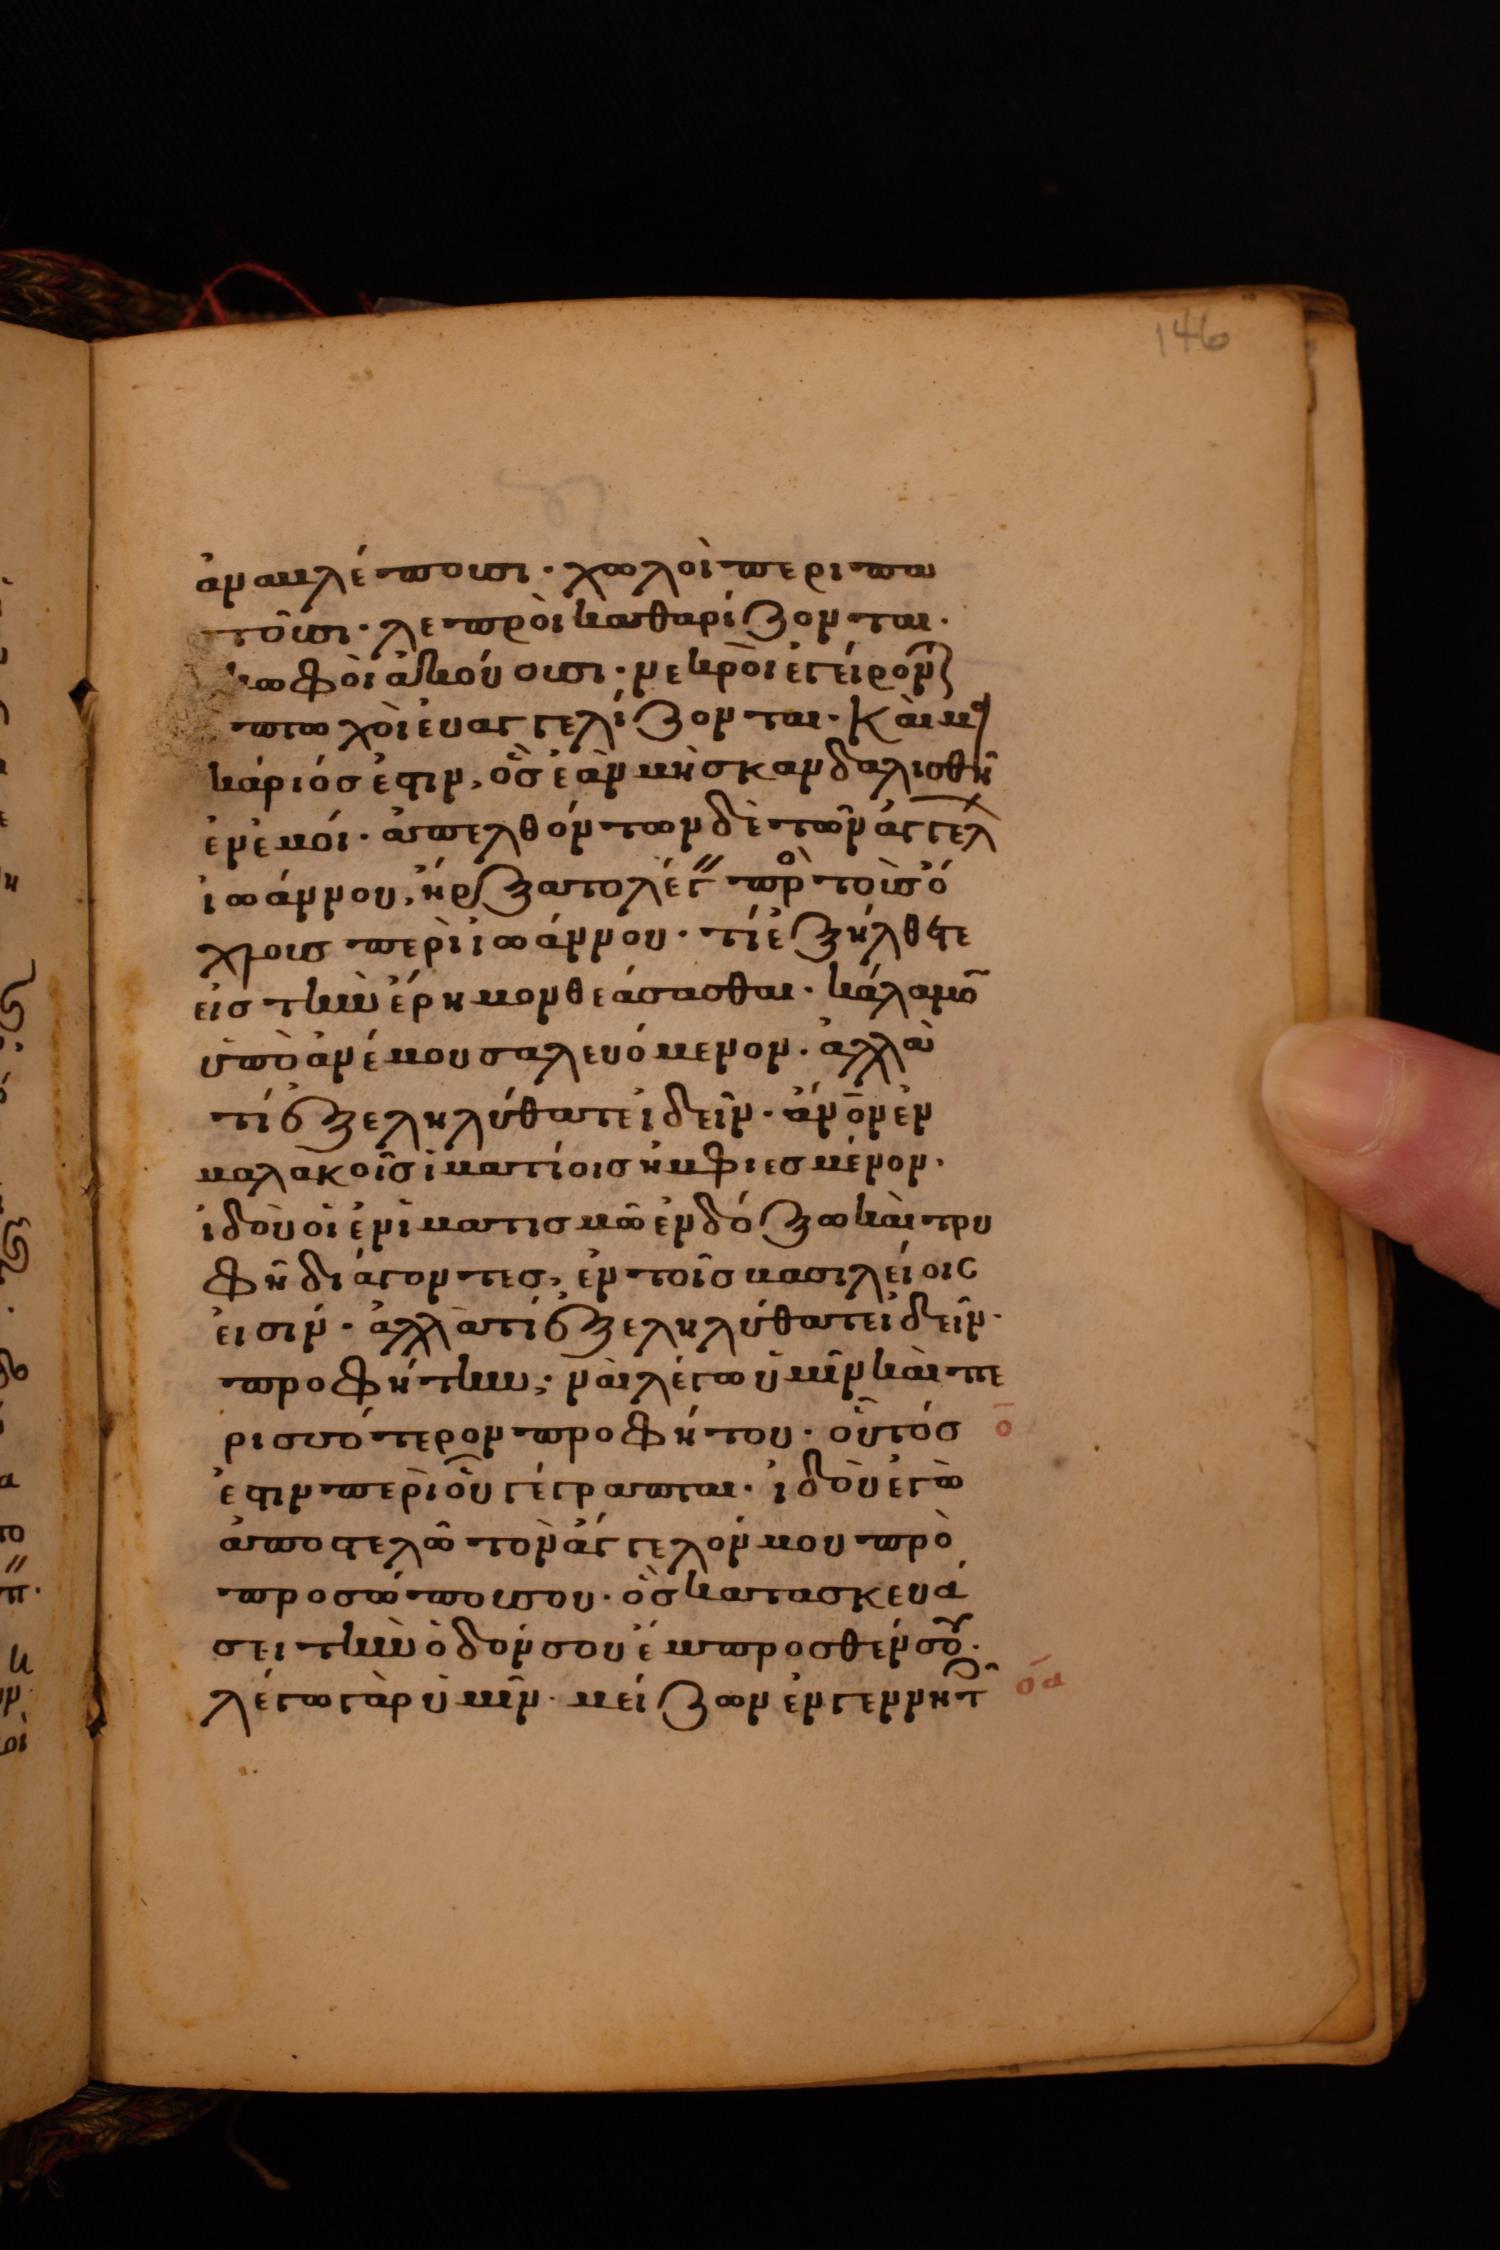 146
ἀναβλέπουσι · χωλοὶ περιπα
τοῦσι · λεπροὶ καθαρίζονται ·
κωφοὶ ἀκούουσι · νεκροὶ ἐγείρον
πτωχοὶ ἐυαγγελίζονται · καὶ μα
κάριός ἐστιν, ὃς ἐὰν μὴ σκανδαλισθῆ
ἐν ἐμοί · ἀπελθόντων δὲ τῶν ἀγγελ
ἰωάννου, ἤρξατο λέγ πρ τοῖς ὄ
χλοις περὶ ἰωάννου · τί ἐξήλθετε
εἰς τὴν ἔρημον θεάσασθαι · κάλαμο
ὑπὸ ἀνέμου σαλευόμενον · ἀλλὰ
τί ἐξεληλύθατε ἰδεῖν · ἄνον ἐν
μαλακοῖς ἱματίοις ἠμφιεσμένον ·
ἰδοὺ οἱ ἐν ἱματισμῶ ἐνδόξω καὶ τρυ
φῆ διάγοντες, ἐν τοῖς βασιλείοις
εἰσίν · ἀλλὰ τί ἐξεληλύθατε ἰδεῖν ·
προφήτην; ναὶ λέγω ὑμῖν καὶ πε
ρισσότερον προφήτου · οὗτός
ο
ἐστιν περὶ οὗ γέγραπται · ἰδοὺ ἐγὼ
ἀποστελῶ τὸν ἄγγελόν μου πρὸ
προσώπου σου · ὃς κατασκευά
σει τὴν ὁδόν σου ἔμπροσθέν σου ·
λέγω γὰρ ὑμῖν · μείζων ἐν γεννητ
οα